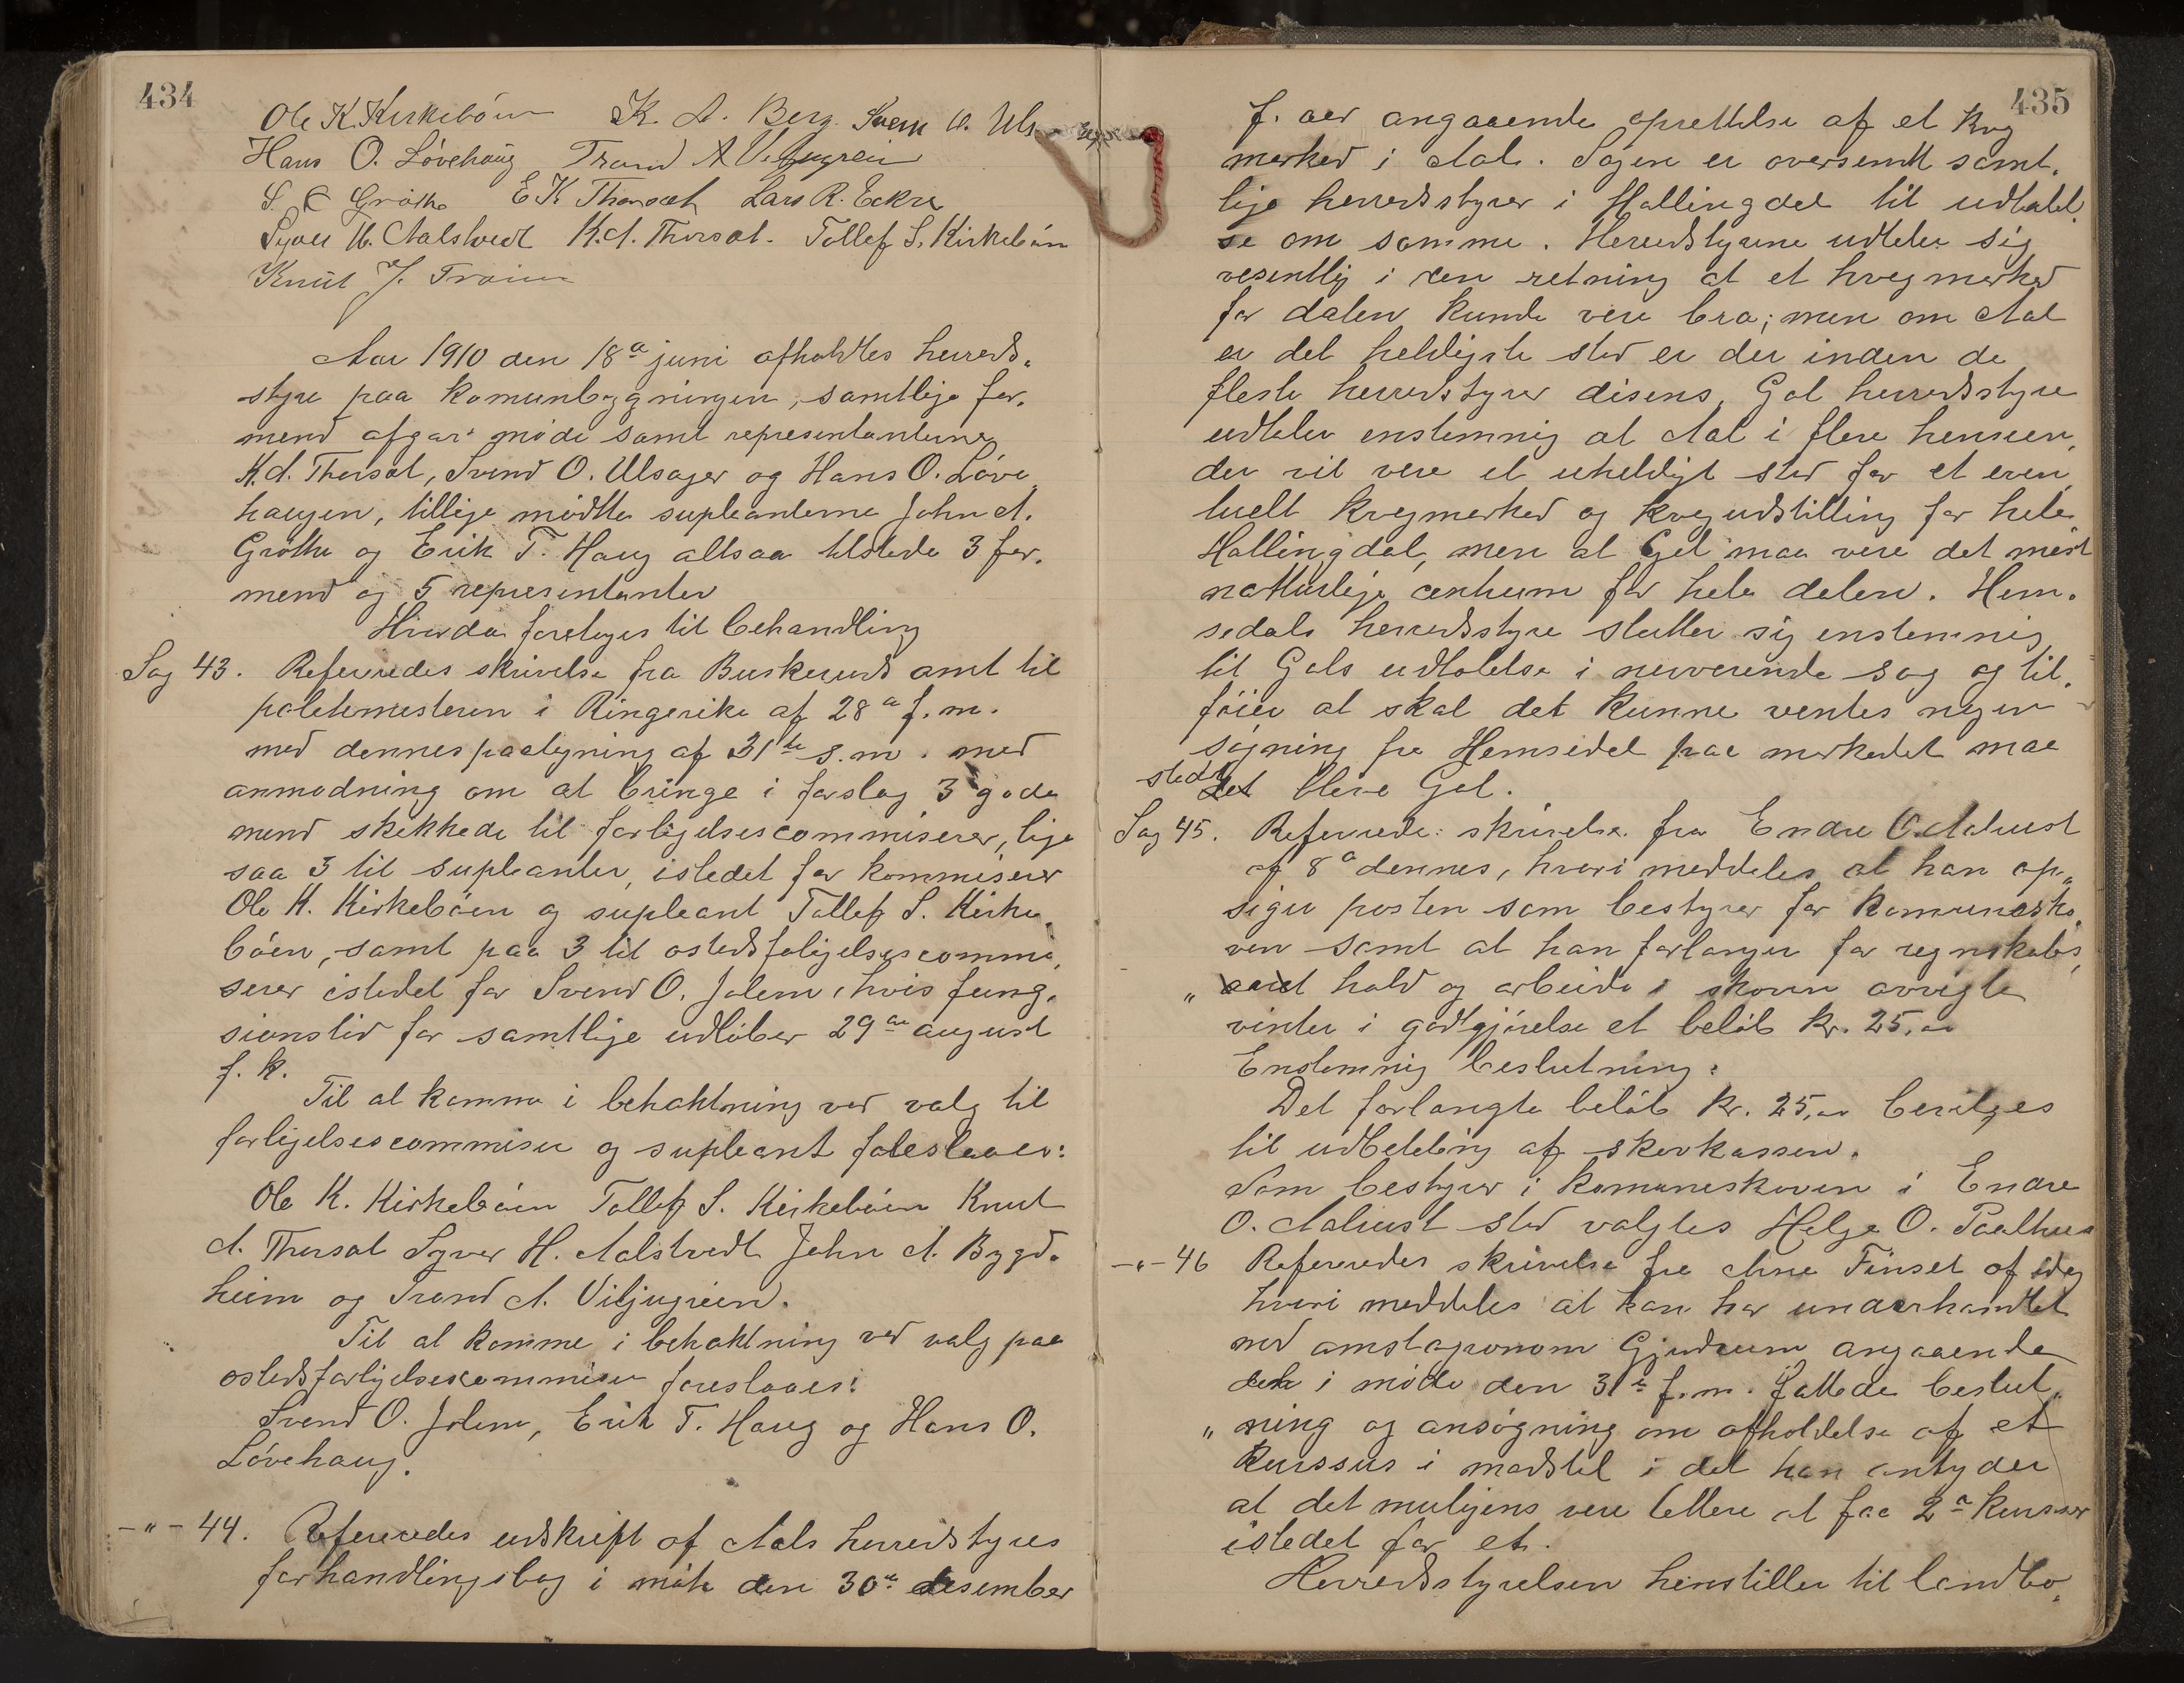 434
Ole K. Kirkeböen K. A. Berg. Svein O. Uls
Hans O. Lövehaug Trond A Viljugrein
S. Gröthe E K Thorset Lars R. Eekre
Syver H. Aalstvedt K. A. Thorsat. Tollef S. Kirkebön
Knut J. Traim
Aar 1910 den 18de juni afholdtes herreds„
styre paa komunbygningen, samtlige for„
mend afgav möde samt representanterne
K. A. Thorsat, Svend O. Ulsager og Hans O. Löve„
haugen, tillige mödtte supleanterne John A.
Gröthe og Erik T. Haug altsaa tilstede 3 for„
mend og 5 representanter
Hvorda foretoges til behandling
Sag 43. Refereredes skrivelse fra Buskeruds amt til
politimesteren i Ringerike af 28de f. m.
med dennes paategning af 31te s. m. med
anmodning om at bringe i forslag 3 gode
mend skikkede til forligelsescommiserer, lige
saa 3 til supleanter, istedet for kommiserer
Ole K. Kirkeböen og supleant Tollef S. Kirke„
böen, samt paa 3 til ostedsfoligelsescommi„
serer istedet for Svend O. Jolem, hvis fung„
sionstid for samtlige udlöber 29de august
f. k.
Til at komme i behaktning ved valg til
forligelsescommiser og supleant foreslaaes:
Ole K. Kirkeböen Tollef S. Kirkeböen Knut
A. Thorsat Syver H. Aalstvedt John A. Bygd„
heim og Trond A. Viljugrein.
Til at komme i behaktning ved valg paa
ostedsforligelsescommiser foreslaaes:
Svend O. Jolem, Erik T. Haug og Hans O.
Lövehaug.
-„- 44. Refereredes udskrift af Aals herredstyres
forhandlingsbog i möte den 30te desember
435
f. aar angaaende oprettelse af et kveg
merked i Aal. Sagen er oversendt samt„
lige herredsstyrer i Hallingdal til udtalel„
se om samme. Herredstyrene udtaler sig
vesentlig i den retning at et kvegmerked
for dalen kunde vere bra; men om Aal
er det heldigste sted er der inden de
fleste herredstyrer disens, Gol herredsstyre
udtaler enstemnig at Aal i flere henseen„
der vil vere et uheldigt sted for et even„
tuelt kvegmerked og kvegudstilling for hele
Hallingdal, men at Gol maa vere det mest
natturlige centrum for hele dalen. Hem„
sedals herredsstyre slutter sig enstemnig
til Gols udtalelse i nerverende sag og til„
föier at skal det kunne ventes nogen
sögning fra Hemsedal paa merkedet maa
stedet blive Gol.
Sag 45. Refererede: skrivelse fra Endre O. Aalrust
af 8de dennes, hvori meddeles at han op„
siger posten som bestyrer for komunesko„
ven samt at han forlanger for regnskabs„
„ hold og arbeide i skoven avvigte
vinter i godtgjörelse et belöb kr. 25,00
Enstemnig beslutning:
Det forlangte belöb kr. 25,00 bevilges
til udbetaling af skovkassen.
Som bestyrer i komuneskoven i Endre
O. Aalrust sted valgtes Helge O. Paalhus
-„- 46 Refereredes skrivelse fra Arne Finset af idag
hvori meddeles at han har underhandlet
med amtsagronom Gjudrum angaaende
den i möde den 31te f. m. fattede beslut„
„ ning og ansögning om afholdelse af et
kurssus i madstel i det han antyder
at det muligens vere lettere at faa 2de kursser
istedet for et.
Herredsstyrelsen henstiller til landbo„